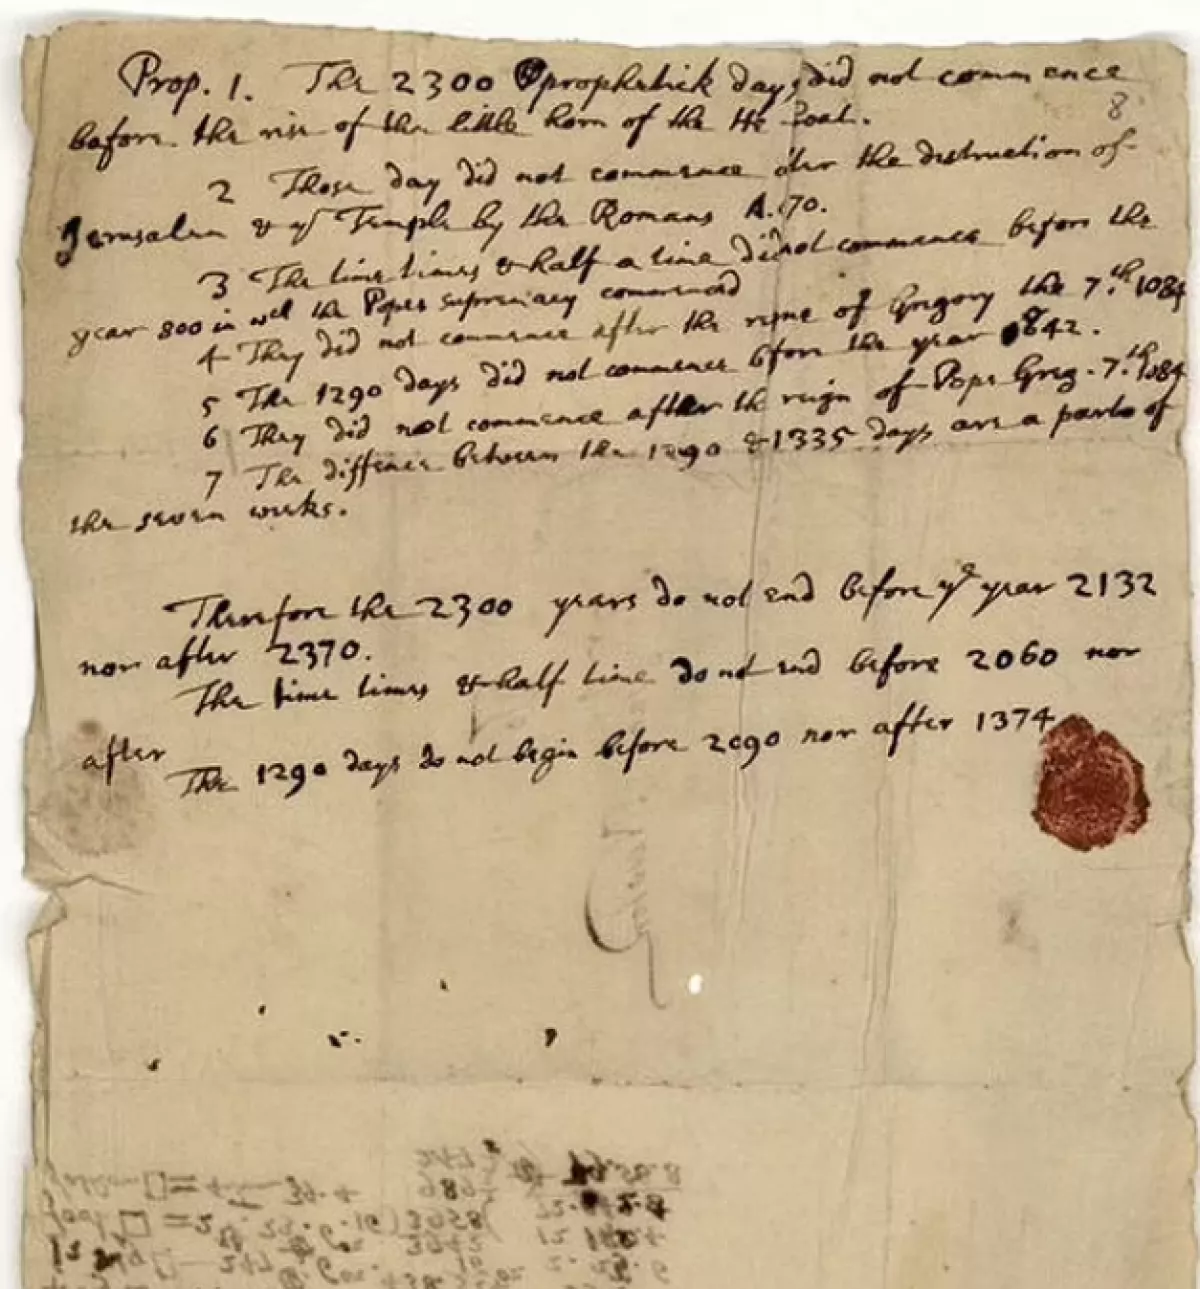 Prop. 1. The 2300 prophetick days did not commence
8
before the rise of the little horn of the He Goat.
2 Those day did not commence after the destruction of
Jerusalem & yᵉ Temple by the Romans A. 70.
3 The time times & half a time did not commence before the
year 800 in wᶜʰ the Popes supremacy commenced
4 They did not commence after the reigne of Gregory the 7.th 1084
5 The 1290 days did not commence bfore the year 842.
6 They did not commence after the reign of Pope Greg. 7.th 1084
7 The diffence between the 1290 & 1335 days are a parts of
the seven weeks.
Therefore the 2300 years do not end before yᵉ year 2132
nor after 2370.
The time times & half time do not end before 2060 nor
after
The 1290 days do not begin before 2090 nor after 1374